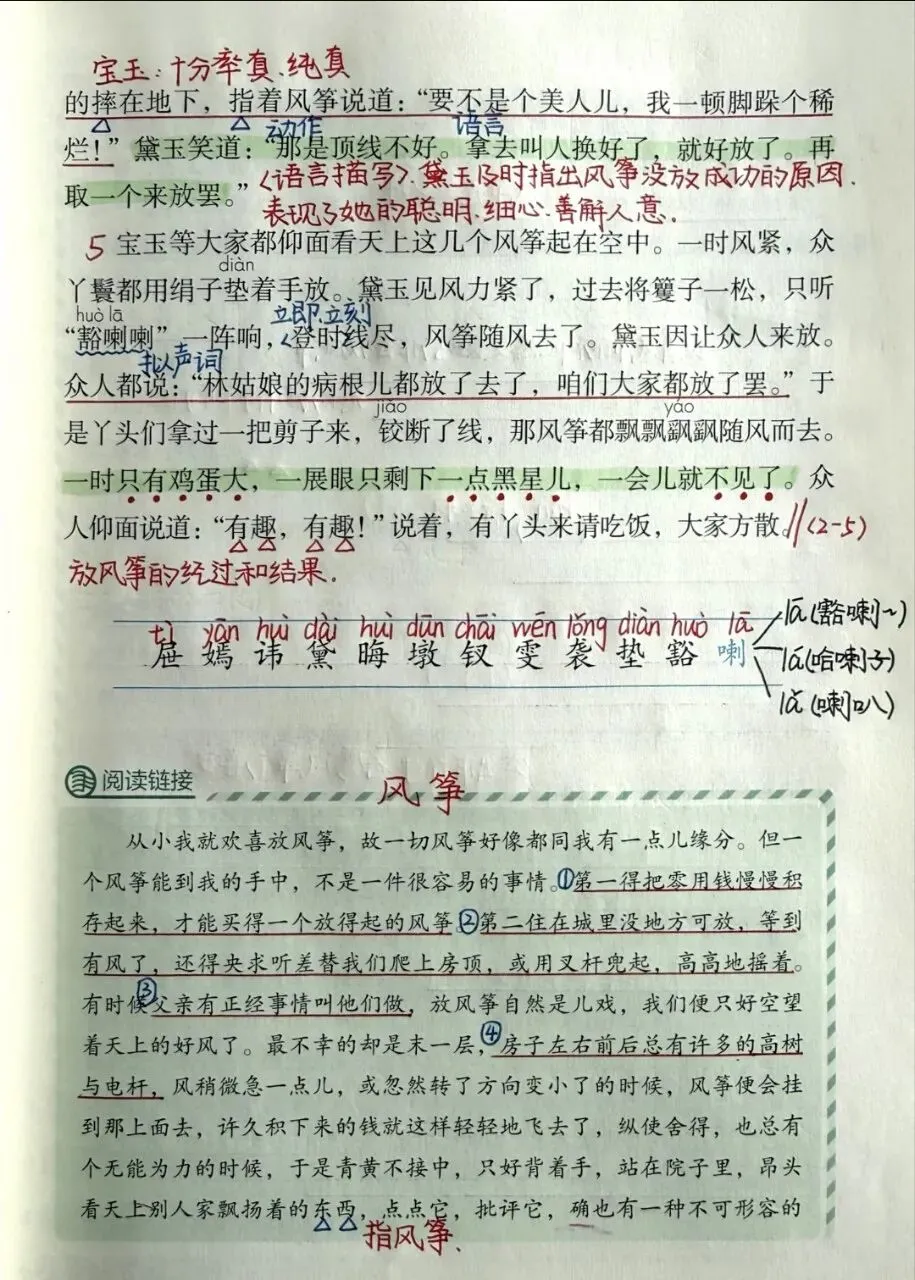 宝玉：十分率真、纯真
的摔在地下，指着风筝说道：“要不是个美人儿，我一顿脚跺个稀
动作 语言
烂！”黛玉笑道：“那是顶线不好。拿去叫人换好了，就好放了。再
取一个来放罢。”〈语言描写〉黛玉及时指出风筝没放成功的原因，
表现了她的聪明、细心、善解人意。
5 宝玉等大家都仰面看天上这几个风筝起在空中。一时风紧，众
diàn
丫鬟都用绢子垫着手放。黛玉见风力紧了，过去将籰子一松，只听
huò lā 立即、立刻
“豁喇喇”一阵响，登时线尽，风筝随风去了。黛玉因让众人来放。
拟声词
众人都说：“林姑娘的病根儿都放了去了，咱们大家都放了罢。”于
jiǎo yáo
是丫头们拿过一把剪子来，铰断了线，那风筝都飘飘飖飖随风而去。
一时只有鸡蛋大，一展眼只剩下一点黑星儿，一会儿就不见了。众
人仰面说道：“有趣，有趣！”说着，有丫头来请吃饭，大家方散。//(2-5)
放风筝的经过和结果.
tì yān huì dài huì dūn chāi wén lǒng diàn huò lā
屉 嫣 讳 黛 晦 墩 钗 雯 袭 垫 豁 喇
lā(豁喇~)
lá(哈喇子)
lǎ(喇叭)
阅读链接
风筝
从小我就欢喜放风筝，故一切风筝好像都同我有一点儿缘分。但一
个风筝能到我的手中，不是一件很容易的事情。①第一得把零用钱慢慢积
存起来，才能买得一个放得起的风筝。②第二住在城里没地方可放，等到
有风了，还得央求听差替我们爬上房顶，或用叉杆兜起，高高地摇着。
有时候③父亲有正经事情叫他们做，放风筝自然是儿戏，我们便只好空望
着天上的好风了。最不幸的却是末一层，④房子左右前后总有许多的高树
与电杆，风稍微急一点儿，或忽然转了方向变小了的时候，风筝便会挂
到那上面去，许久积下来的钱就这样轻轻地飞去了，纵使舍得，也总有
个无能为力的时候，于是青黄不接中，只好背着手，站在院子里，昂头
看天上别人家飘扬着的东西，点点它，批评它，确也有一种不可形容的
指风筝.